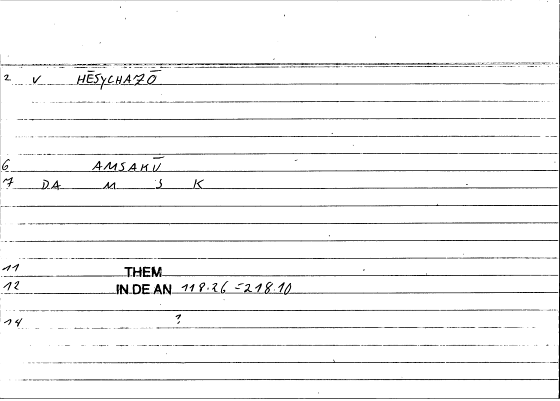 2 V HĒSYCHAZŌ
6 AMSAKŪ
7 DA M S K
11 THEM
12 IN.DE AN 118.26 = 218.10
14 ?